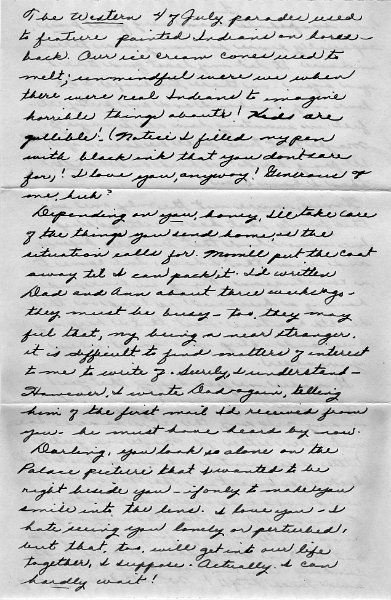 The Western 4 July parades used
to feature painted Indians on horse-
back. Our ice cream cones used to
melt; unmindful were we when
there were real Indians to imagine
horrible things about! Kids are
gullible. (Notice I filled my pen
with black ink that you don't care
for)! I love you, anyway! Generous of
me, huh?
Depending on you, honey, I'll take care
of the things you send home, as the
situation calls for. Morrill put the coat
away til I can pack it. I'd written
Dad and Ann about three weeks ago -
they must be busy - too, they may
feel that, my being a near stranger,
it is difficult to find matters of interest
to me to write of. Surely, I understand -
However, I wrote Dad again, telling
him of the first mail I'd received from
you - he must have heard by now.
Darling, you look so alone on the
Palace picture that I wanted to be
right beside you - if only to make you
smile into the lens. I love you - I
hate seeing you lonely or perturbed,
but that, too, will get into our life
together, I suppose. Actually, I can
hardly wait!